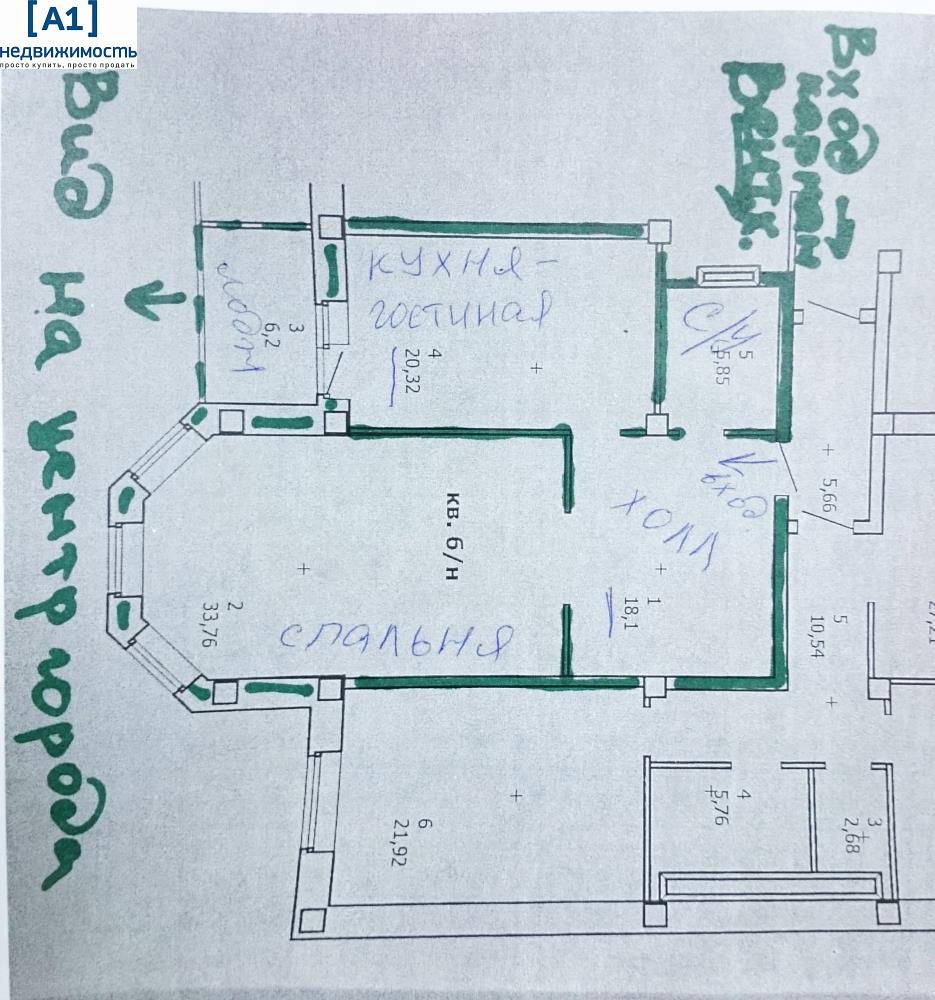 [A1]
недвижимость
просто купить, просто продать
Вход →
картой
Вентк.
Вид на центр города
кухня-
гостиная
4
20,32
лоджия
3
6,2
с/у
5
5,85
вход
холл
1
18,1
кв. б/н
спальня
2
33,76
5,66
5
10,54
27,21
6
21,92
4
5,76
3
2,68